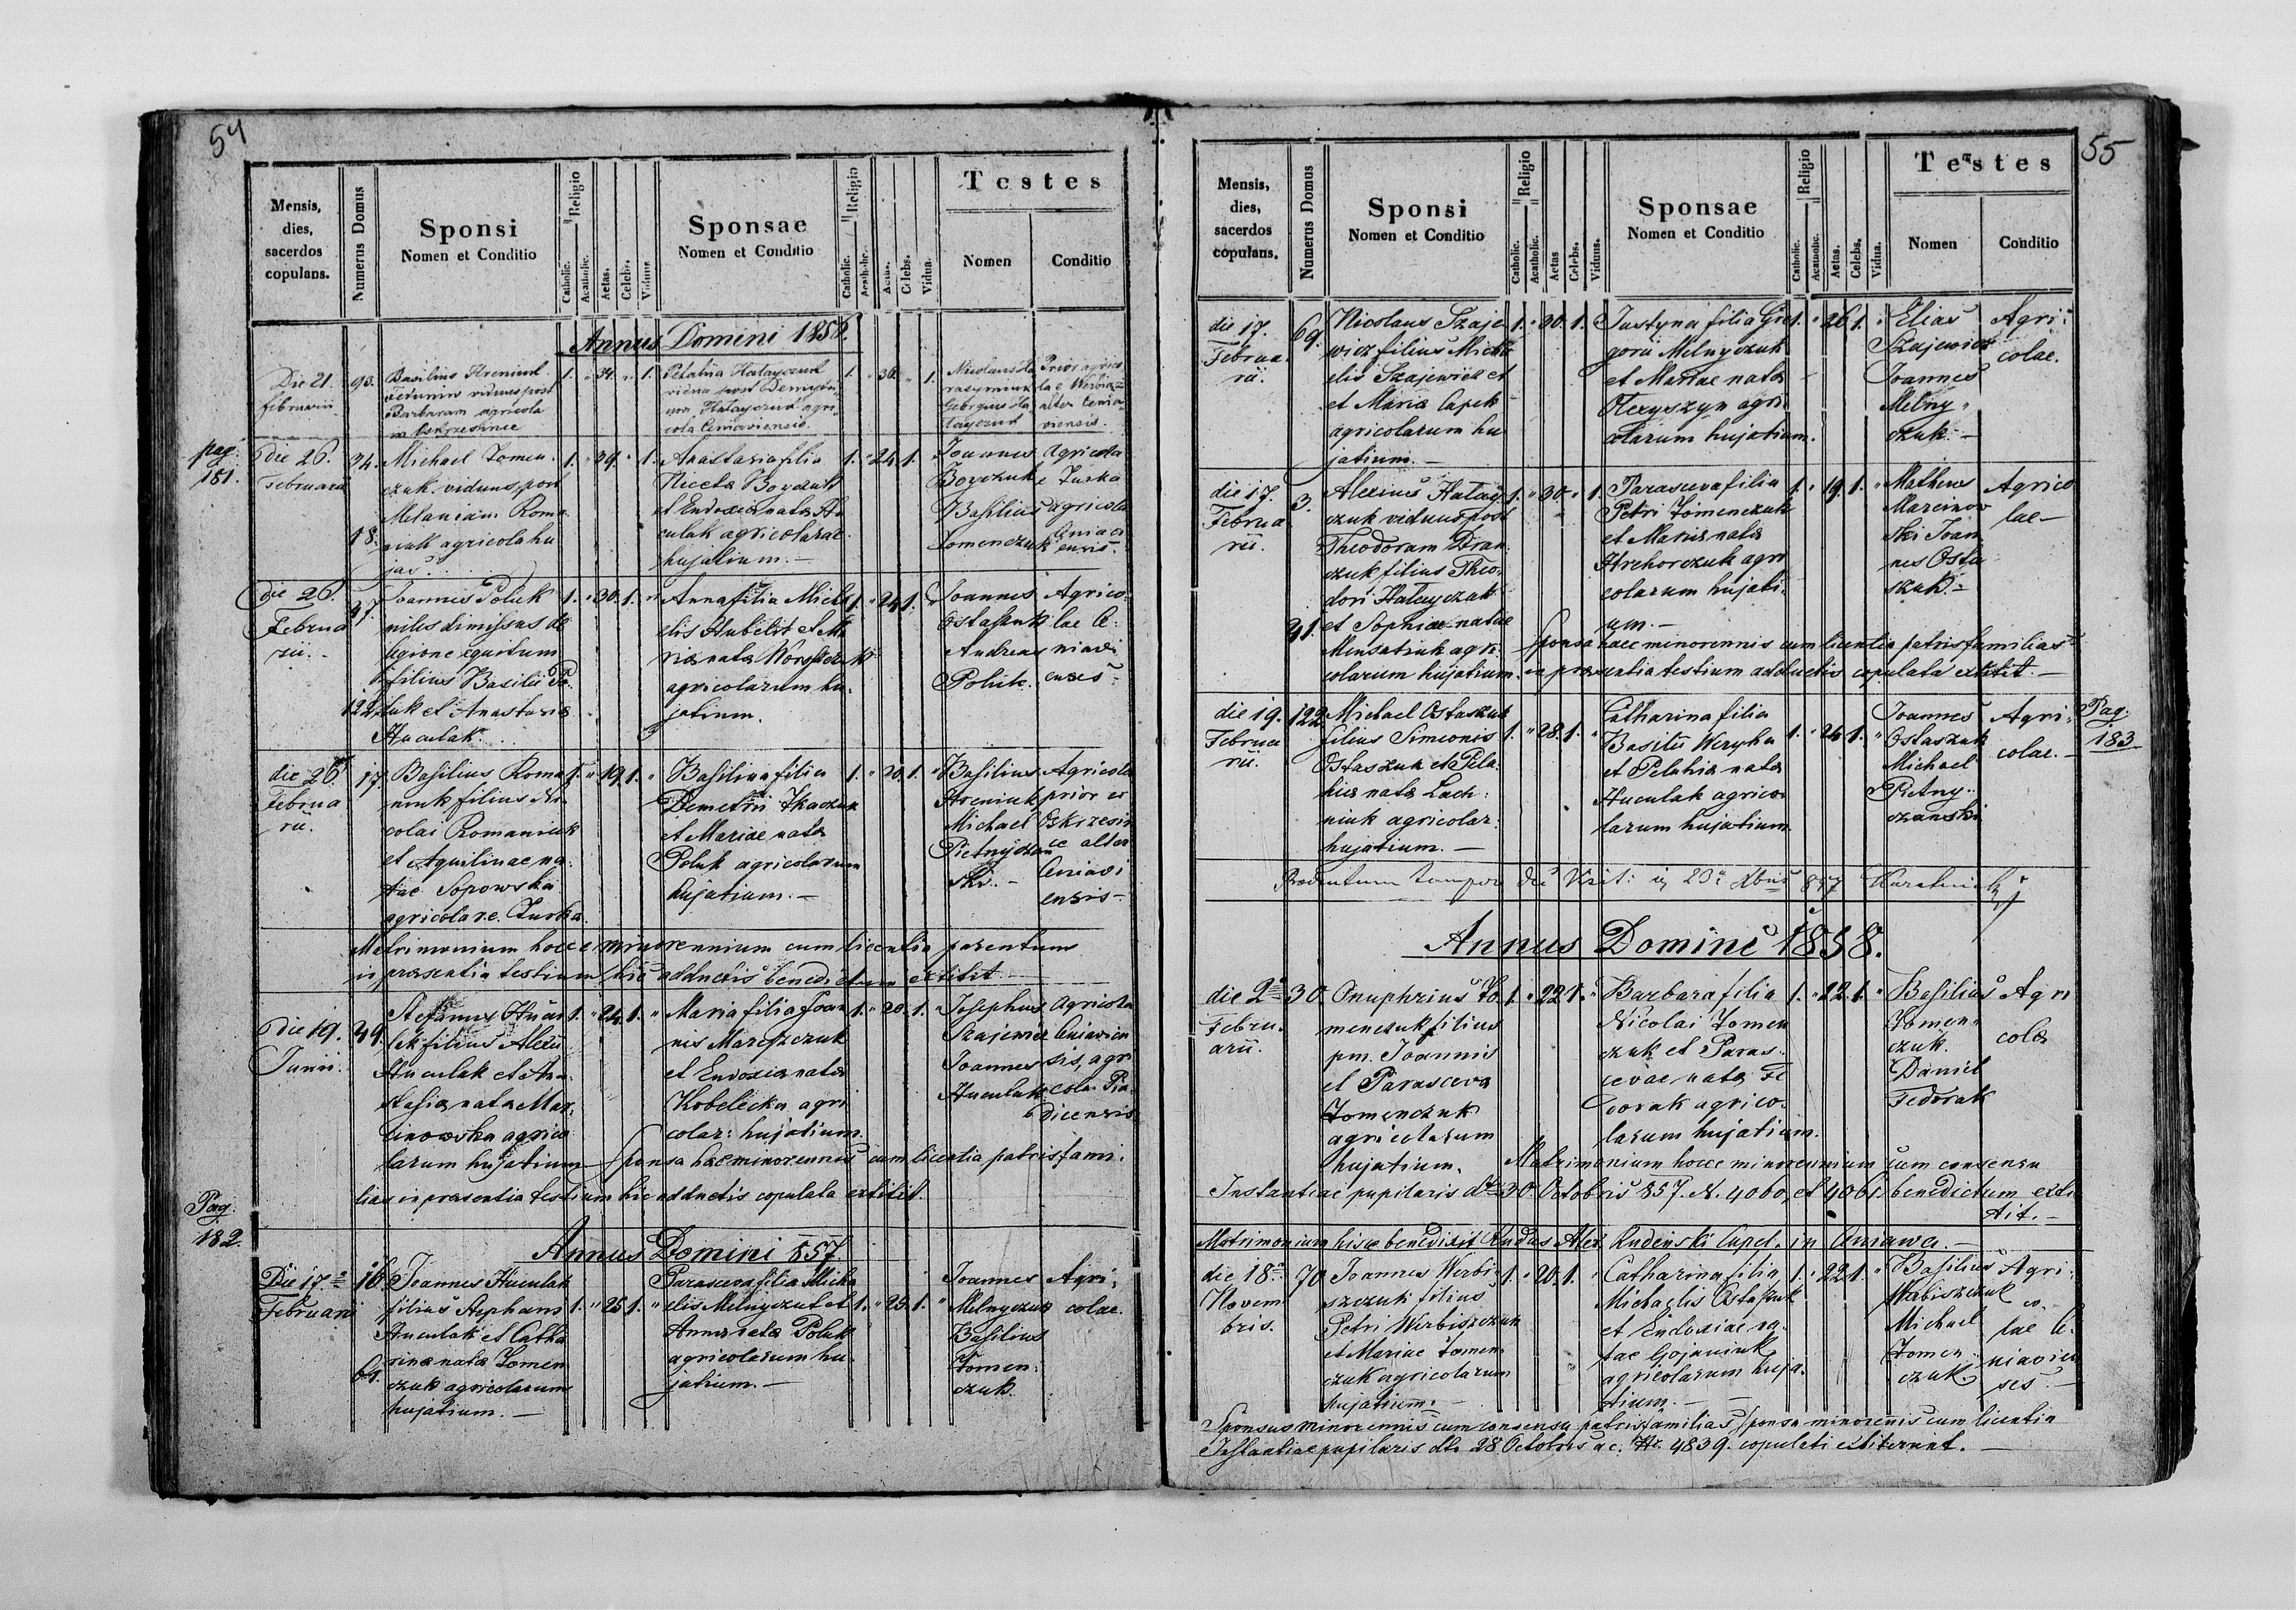 54
Mensis, dies, sacerdos copulans.
Numerus Domus
Sponsi
Nomen et Conditio
Religio
Catholic.
Acatholic.
Aetas.
Celebs.
Viduus
Sponsae
Nomen et Conditio
Religio
Catholic.
Acatholic.
Aetas.
Celebs.
Vidua.
Testes
Nomen
Conditio
Annus Domini 185
Die 21.
februarii
90.
Basilius Hreniuk
viduus post
Barbaram agricola
in Oskrzesince
1. " 34. " 1.
Pelahia Hatayczuk
vidua post Demytri
um Hatayczuk agri
cola Ceniaviensis.
1. " 36. " 1.
Nicolaus Ha
rasymiuk
Georgius Ha
tayczuk
Prior agrico
la e Werbiaz
alter Cenia
viensis.
pag.
181.
die 26.
Februarii
34.
18.
Michael Tomen
czuk viduus post
Melaniam Roma
niuk agricola hu
jas.
1. " 39. " 1.
Anastasia filia
Niceta Boyczuk
et Eudoxia nata Hu
culak agricolarae
hujatium. —
1. " 24. 1.
Joannes
Boyczuk
Basilius
Tomenczuk
Agricola
e Turka
agricola
Ceniavi
ensis.
die 26.
Februa
rii.
37.
122
Joannes Poluk
miles dimissus de
legione equitum
filius Basilii Po
luk et Anastasia
Huculak.
1. " 30. 1. "
Anna filia Micha
elis Hubelit et Ma
ria nata
agricolarum hu
jatium.
1. " 24. 1. "
Joannes
Ostaszuk
Andreas
Poluk.
Agrico
lae Ce
niavi
enses
die 26.
Februa
rii.
17.
Basilius Roma
niuk filius Ni
colai Romaniuk
et Aquilinae na
tae Sopowska
agricolar. e Turka.
1. " 19. 1. "
Basilina filia
Demetrii Tkaczuk
et Mariae nata
Poluk agricolarum
hujatium. —
1. " 20. 1. "
Basilius
Hreniuk
Michael
Pietnyczan
ski. —
Agricola
prior ex
Oskrzesin
ce alter
Ceniavi
ensis —
Matrimonium hocce minorennium cum licentia parentum
in praesentia testium hic adductis benedictum extitit —
Die 19.
Junii.
49.
Stefanus Hucu
lak filius Alexii
Huculak et Ana
stasia nata Mar
cinowska agrico
larum hujatium
1. " 24. 1. "
Maria filia Joan
nis Marszczuk
et Eudoxia nata
Kobelecka agri
colar: hujatium.
1. " 20. 1. "
Josephus
Szajewicz
Joannes
Huculak
Agricola
Ceniavien
sis, agri
cola Pia
dicensis
Sponsa hac minorennis cum licentia patris fami
lias in praesentia testium hic adductis copulata extitit.
Pag.
182.
Annus Domini 857
Die 17.
Februarii
16.
61.
Joannes Huculak
filius Stephani
Huculak et Catha
rina nata Tomen
czuk agricolarum
hujatium. —
1. " 25. 1. "
Parasceva filia Micha
elis Melnyczuk et
Anna nata Poluk
agricolarum hu
jatium. —
1. " 25. 1. "
Joannes
Melnyczuk
Basilius
Tomen
czuk.
Agri
colae.
55
Mensis, dies, sacerdos copulans.
Numerus Domus
Sponsi
Nomen et Conditio
Religio
Catholic.
Acatholic.
Aetas
Celebs.
Viduus.
Sponsae
Nomen et Conditio
Religio
Catholic.
Acatholic.
Aetas.
Celebs.
Vidua.
Testes
Nomen
Conditio
die 17.
Februa
rii.
69.
Nicolaus Szaje
wicz filius Micha
elis Szajewicz et
et Maria Capek
agricolarum hu
jatium. —
1. " 30. 1. "
Justyna filia Gre
gorii Melnyczuk
et Mariae nata
Olexyszyn agri
colarum hujatium.
1. " 26. 1. "
Elias
Szajewicz
Joannes
Melny
czuk. —
Agri
colae.
die 17.
Februa
rii.
3.
41.
Alexius Hatay
czuk viduus post
Theodoram
czuk filius Theo
dori Hatayczuk
et Sophiae natae
agri
colarum hujatium.
1. " 30. " 1.
Parasceva filia
Petri Tomenczuk
et Maria nata
Hrehorczuk agri
colarum hujati
um. —
1. " 19. 1. "
Matheus
Marcinow
ski Joan
nes Osta
szuk. —
Agrico
lae —
Sponsa haec minorennis cum licentia patris familias
in praesentia testium adductis copulata extitit. —
die 19.
Februa
rii.
122
Michael Ostaszuk
filius Simeonis
Ostaszuk et Pela
hia nata Lach
niuk agricolar.
hujatium. —
1. " 28. 1. "
Catharina filia
Basilii Weryha
et Pelahia nata
Huculak agrico
larum hujatium.
1. " 24. 1. "
Joannes
Ostaszuk
Michael
Pietny
czanski
Agri
colae. —
Pag.
183
Annus Domini 1858.
die 2
Febru
arii.
30.
Onuphrius To
menczuk filius
pm. Joannis
et Parasceva
Tomenczuk
agricolarum
hujatium.
1. " 22. 1. "
Barbara filia
Nicolai Tomen
czuk et Paras
cevae nata Fe
dorak agrico
larum hujatium.
1. " 22. 1. "
Basilius
Tomen
czuk.
Daniel
Fedorak
Agri
colae
Matrimonium hocce minorennium cum consensu
Instantiae pupilaris dto 30 Octobris 857. N. 4060, et 4061 benedictum exti
tit. —
Matrimonium hisce benedixit Andreas Alex. Rudenski Cupel. in Cniawa. —
die 18
Novem
bris.
70.
Joannes Werbi
szczuk filius
Petri Werbiszczuk
et Mariae Tomen
czuk agricolarum
hujatium. —
1. " 20. 1. "
Catharina filia
Michaelis Ostaszuk
et Eudoxiae na
tae Gojaniuk
agricolarum huja
tium. —
1. " 22. 1. "
Basilius
Werbiszczuk
Michael
Tomen
czuk.
Agri
co
lae C
niavien
ses. —
Sponsus minorennis cum consensu patris familias, sponsa minorenis cum licentia
Instantiae pupilaris dto 28 Octobris a.c. Nr. 4839. copulati extiterint. —